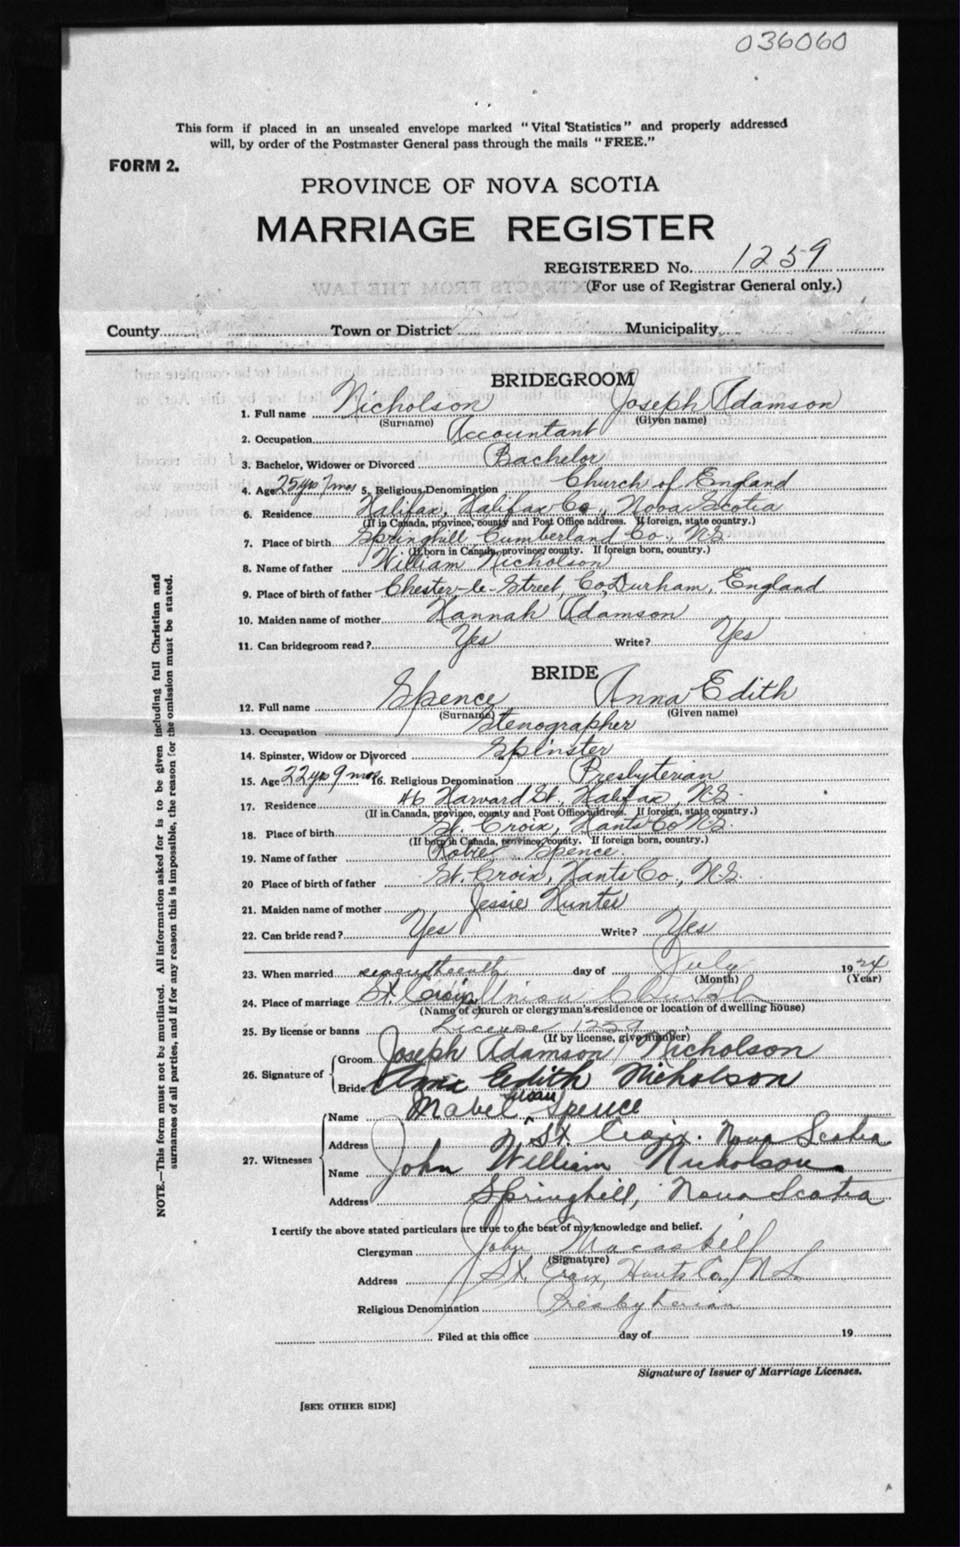 036060
This form if placed in an unsealed envelope marked "Vital Statistics" and properly addressed
will, by order of the Postmaster General pass through the mails "FREE."
FORM 2.
PROVINCE OF NOVA SCOTIA
MARRIAGE REGISTER
REGISTERED No. 1259
(For use of Registrar General only.)
County Town or District Municipality
BRIDEGROOM
1. Full name Nicholson Joseph Adamson
(Surname) (Given name)
2. Occupation Accountant
3. Bachelor, Widower or Divorced Bachelor
4. Age 25 yrs 7 mos 5. Religious Denomination Church of England
6. Residence Halifax, Halifax Co., Nova Scotia
(If in Canada, province, county and Post Office address. If foreign, state country.)
7. Place of birth Springhill Cumberland Co., N.S.
(If born in Canada, province, county. If foreign born, country.)
8. Name of father William Nicholson
9. Place of birth of father Chester-le-Street, Co. Durham, England
10. Maiden name of mother Hannah Adamson
11. Can bridegroom read? Yes Write? Yes
BRIDE
12. Full name Spence Anna Edith
(Surname) (Given name)
13. Occupation Stenographer
14. Spinster, Widow or Divorced Spinster
15. Age 22 yrs 9 mos 16. Religious Denomination Presbyterian
17. Residence 46 Harvard St., Halifax, N.S.
(If in Canada, province, county and Post Office address. If foreign, state country.)
18. Place of birth St. Croix, Hants Co N.S.
(If born in Canada, province, county. If foreign born, country.)
19. Name of father Robie Spence
20 Place of birth of father St. Croix, Hants Co., N.S.
21. Maiden name of mother Jessie Hunter
22. Can bride read? Yes Write? Yes
23. When married seventeenth day of July 1924
(Month) (Year)
24. Place of marriage St. Croix, Union Church
(Name of church or clergyman's residence or location of dwelling house)
25. By license or banns License 1259
(If by license, give number)
26. Signature of Groom Joseph Adamson Nicholson
Bride Anna Edith Nicholson
27. Witnesses Name Mabel Spence
Address St. Croix. Nova Scotia
Name John William Nicholson
Address Springhill, Nova Scotia
I certify the above stated particulars are true to the best of my knowledge and belief.
Clergyman John Macaskill
(Signature)
Address St. Croix, Hants Co., N.S.
Religious Denomination Presbyterian
Filed at this office day of 19
Signature of Issuer of Marriage Licenses.
[SEE OTHER SIDE]
NOTE.—This form must not be mutilated. All information asked for is to be given including full Christian and
surnames of all parties, and if for any reason this is impossible, the reason for the omission must be stated.